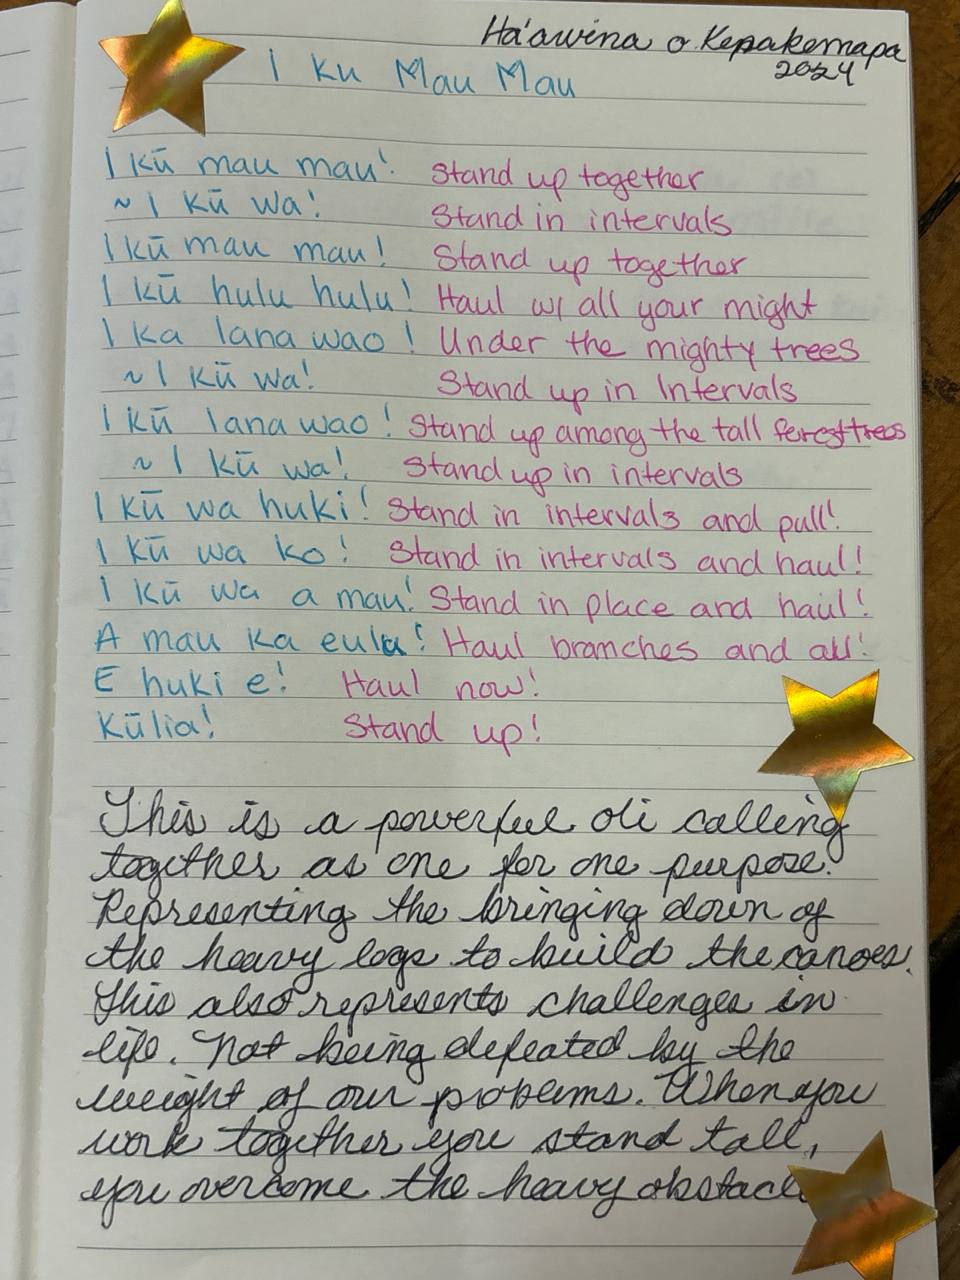 Ha'awina o Kepakemapa
2024
I Ku Mau Mau
I Kū mau mau! Stand up together
~ I Kū wa! Stand in intervals
I Kū mau mau! Stand up together
I Kū hulu hulu! Haul w/ all your might
I Ka lana wao! Under the mighty trees
~ I Kū wa! Stand up in Intervals
I Kū lana wao! Stand up among the tall forest trees
~ I Kū wa! Stand up in intervals
I Kū wa huki! Stand in intervals and pull!
I Kū wa ko! Stand in intervals and haul!
I Kū wa a mau! Stand in place and haul!
A mau Ka eulu! Haul branches and all!
E huki e! Haul now!
Kūlia! Stand up!
This is a powerful oli calling
together as one for one purpose.
Representing the bringing down of
the heavy logs to build the canoes.
This also represents challenges in
life. Not being defeated by the
weight of our problems. When you
work together you stand tall,
you overcome the heavy